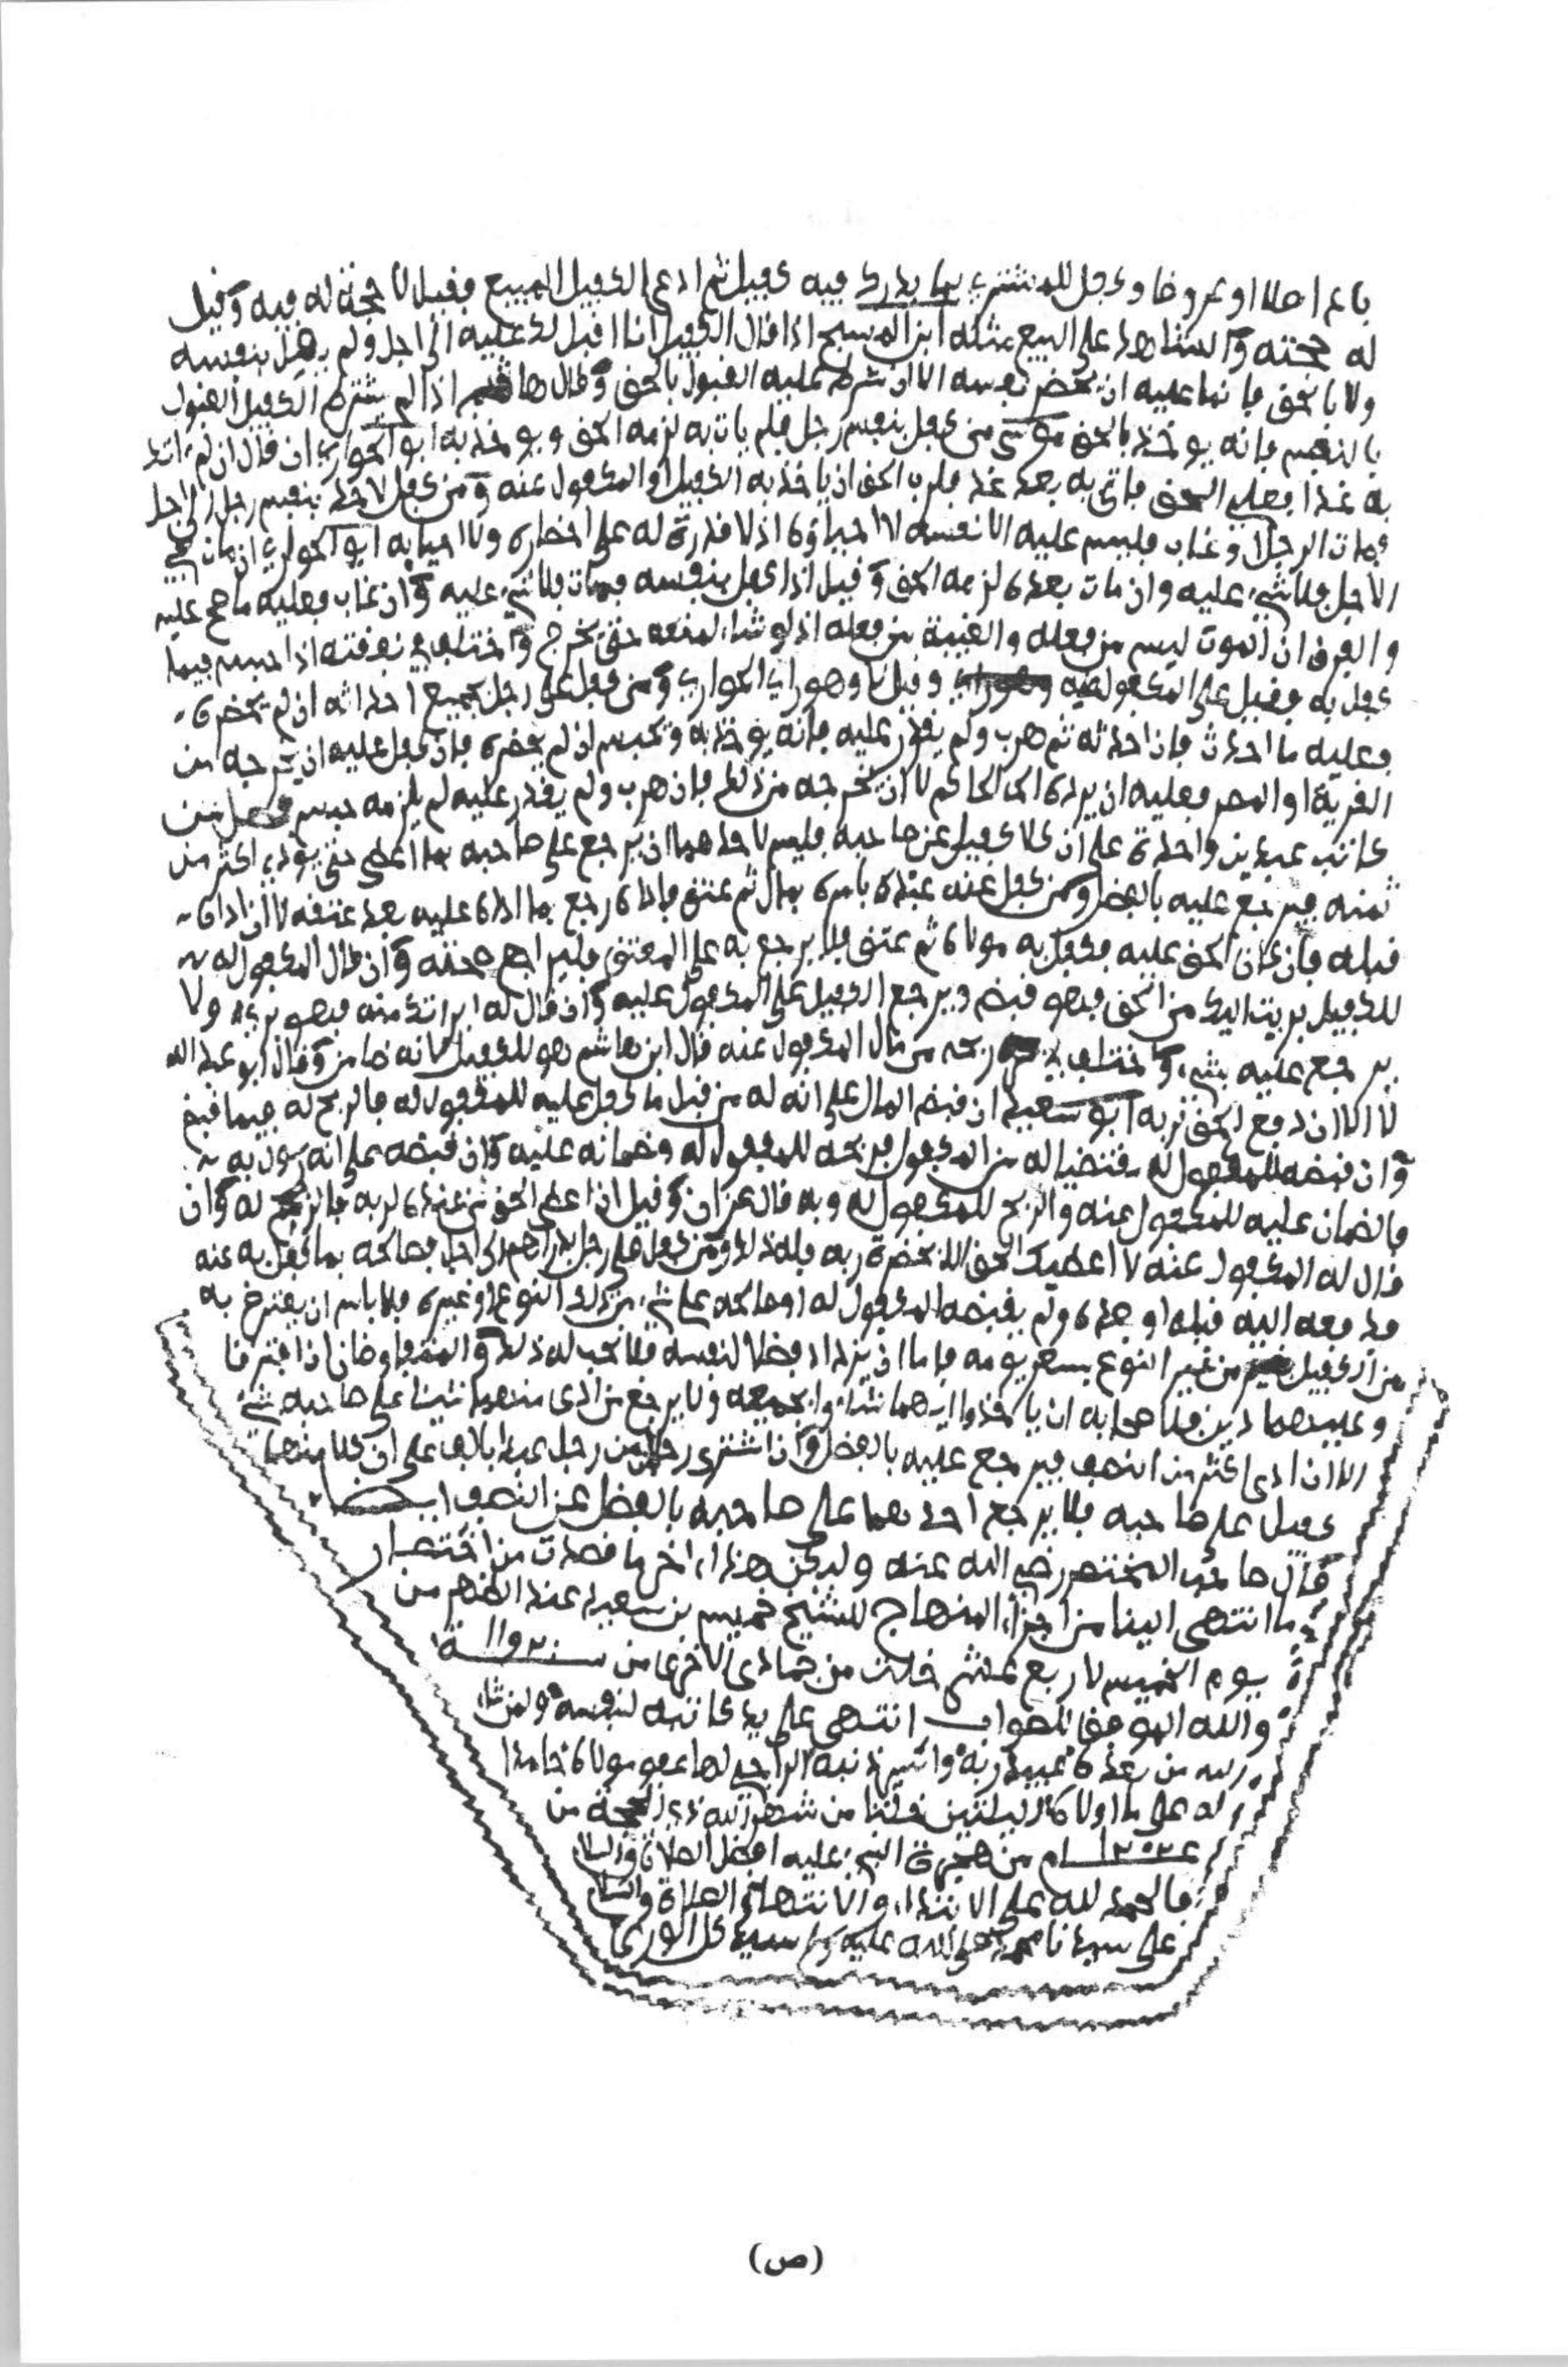 باع اصلا او عروضا وكفل للمشتري بما يدرك فيه كفيل ثم ادعى الكفيل المبيع فقيل لا حجة له فيه وقيل
له حجته والشاهد على البيع مثله ابن المسبح اذا قال الكفيل انا اقبل لك عليه الى اجل ولم يقل بنفسه
ولا بالحق فانما عليه ان يحضر نفسه الا ان شرط عليه القبول بالحق وقال هاشم اذا لم يشترط الكفيل القبول
بالنفس فانه يوخذ بالحق موسى من كفل بنفس رجل فلم يات به لزمه الحق ويوخذ به ابو الحواري ان قال ان لم ءاتك
به غدا فعلي الحق فاتى به بعد غد فلرب الحق ان ياخذ به الكفيل او المكفول عنه ومن كفل لاحد بنفس رجل الى اجل
فمات الرجل او غاب فليس عليه الا نفسه لا احياؤه اذ لا قدرة له على احضاره ولا احيائه ابو الحواري ان مات في
الاجل فلا شيء عليه وان مات بعده لزمه الحق وقيل اذا كفل بنفسه فمات فلا شيء عليه وان غاب فعليه ما صح عليه
والفرق ان الموت ليس من فعله والغيبة من فعله اذ لو شاء لمنعه حتى يخرج واختلف في نفقته اذا حبس فيما
كفل به فقيل على المكفول عليه وقيل لا وهو راي الحواري ومن كفل على رجل بجميع احداثه ان لم يحضره
فعليه ما احدث فان احدث ثم هرب ولم يقدر عليه فانه يوخذ به ويحبس ان لم يحضره فان كفل عليه ان يخرجه من
القرية او المصر فعليه ان يرده الى الحاكم لا ان يخرجه من ذلك فان هرب ولم يقدر عليه لم يلزمه حبس فصل من
كاتب عبدين واحدة على ان كلا كفيل عن صاحبه فليس لاحدهما ان يرجع على صاحبه بما اعطى حتى يودي اكثر من
ثمنه فيرجع عليه بالفضل ومن كفل عنه عبده بامره بمال ثم عتق فاداه رجع بما اداه عليه بعد عتقه لا ان اداه
قبله فان كان الحق عليه فكفل به مولاه ثم عتق فلا يرجع به على المعتق فليراجع صحته وان قال المكفول له
للكفيل بريت اليك من الحق فهو قبض ويرجع الكفيل على المكفول عليه وان قال له ابراتك منه فهو بريء ولا
يرجع عليه بشيء واختلف في ربحه من مال المكفول عنه قال ابن هاشم هو للكفيل لانه ضامن وقال ابو عبد الله
لا الا ان دفع الحق لربه ابو سعيد ان قبض المال على انه له من قبل ما كفل عليه للمكفول له فالربح له فيما قبض
وان قبضه للمكفول له مقتضيا له من المكفول فربحه للمكفول له وضمانه عليه وان قبضه على انه رسول به
فالضمان عليه للمكفول عنه والربح للمكفول له وبه قال عزان وقيل اذا اعطى الحق من عنده لربه فالربح له وان
قال له المكفول عنه لا اعطيك الحق الا بحضرة ربه فله ذلك ومن كفل على رجل بدراهم الى اجل فصالحه بما كفل به عنه
فدفعه اليه قبله او بعده ولم يقبضه المكفول له او صالحه على شيء من ذلك النوع او غيره فلا باس ان يقترض به
من الكفيل من غير النوع بسعر يومه فاما ان يزداد فضلا لنفسه فلا يجب له ذلك والمتفاوضان اذا افترقا
وعليهما دين فلاصحابه ان ياخذوا ايهما شاءوا بجميعه ولا يرجع من ادى منهما شيئا على صاحبه بشيء
الا ان ادى اكثر من النصف فيرجع عليه بالفضل واذا اشترى رجلان من رجل عبدا بالف على ان كلا منهما
كفيل على صاحبه فلا يرجع احدهما على صاحبه بالفضل عن النصف ايضا
قال صاحب المختصر رضي الله عنه وليكن هذا ءاخر ما قصدت من اختصار
ما انتهى الينا من اجزاء المنهاج للشيخ خميس بن سعيد عند الظهر من
يوم الخميس لاربع عشر خلت من جمادى الاخرى من سنة
والله الموفق للصواب انتهى على يد كاتبه لنفسه ولمن شاء
الله من بعده عبيد ربه واسير ذنبه الراجي لعفو مولاه حامدا
له على ما اولاه لليلتين خلتا من شهر الله ذي الحجة من
عام من هجرة النبي عليه افضل الصلاة والسلام
فالحمد لله على الابتداء والانتهاء والصلاة والسلام
على سيدنا محمد صلى الله عليه وسلم سيد كل الورى
(ص)